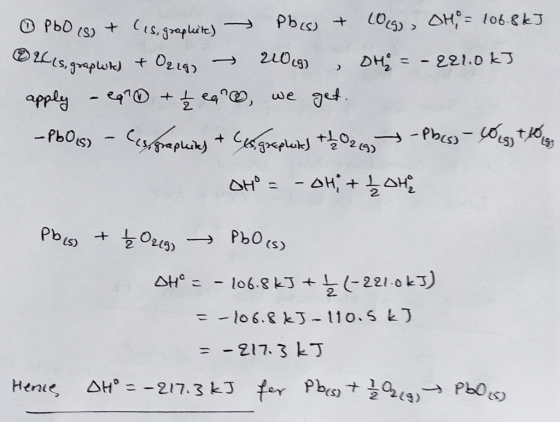 ① PbO(s) + C(s, graphite) → Pb(s) + CO(g), ΔH₁° = 106.8 kJ
② 2C(s, graphite) + O₂(g) → 2CO(g), ΔH₂° = -221.0 kJ
apply - eqⁿ① + ½ eqⁿ②, we get.
-PbO(s) - C(s, graphite) + C(s, graphite) + ½O₂(g) → -Pb(s) - CO(g) + CO(g)
ΔH° = -ΔH₁° + ½ ΔH₂°
Pb(s) + ½ O₂(g) → PbO(s)
ΔH° = -106.8 kJ + ½ (-221.0 kJ)
= -106.8 kJ - 110.5 kJ
= -217.3 kJ
Hence, ΔH° = -217.3 kJ for Pb(s) + ½ O₂(g) → PbO(s)